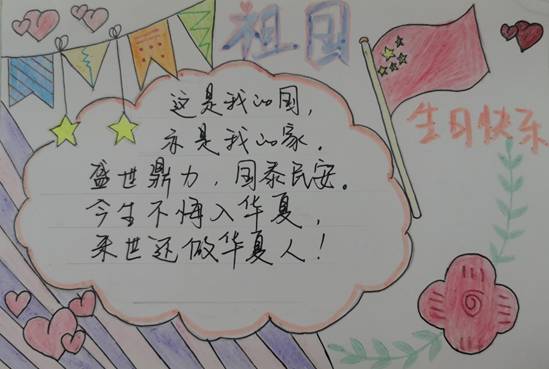 祖国
生日快乐
这是我的国，
亦是我的家。
盛世鼎力，国泰民安。
今生不悔入华夏，
来世还做华夏人！